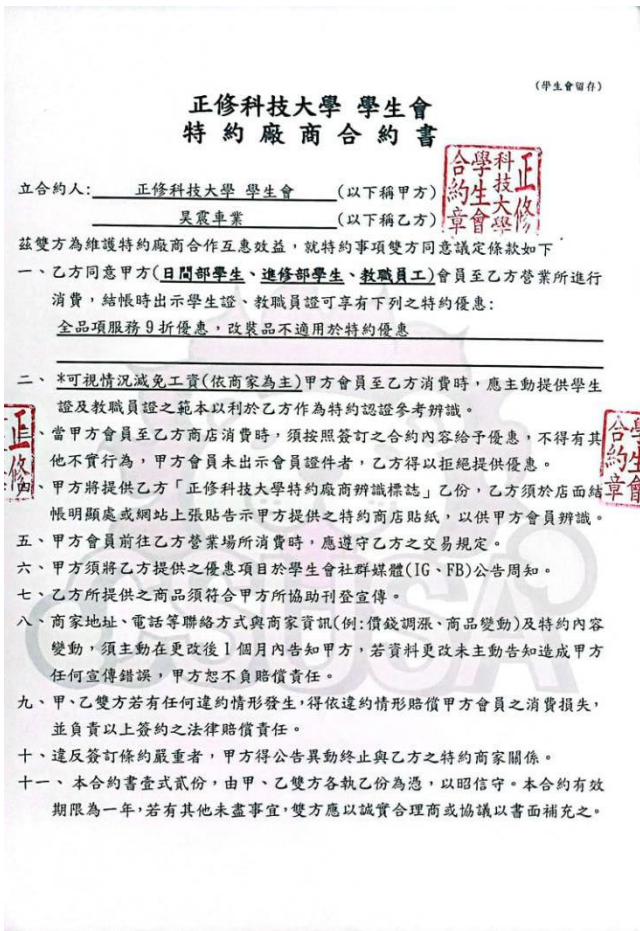 (學生會留存)
正修科技大學 學生會
特約廠商合約書
正修
科技大學
學生會
合約章
立合約人: 正修科技大學 學生會 (以下稱甲方)
昊震車業 (以下稱乙方)
茲雙方為維護特約廠商合作互惠效益，就特約事項雙方同意議定條款如下
一、乙方同意甲方(日間部學生、進修部學生、教職員工)會員至乙方營業所進行
消費，結帳時出示學生證、教職員證可享有下列之特約優惠:
全品項服務9折優惠，改裝品不適用於特約優惠
二、 *可視情況減免工資(依商家為主)甲方會員至乙方消費時，應主動提供學生
證及教職員證之範本以利於乙方作為特約認證參考辨識。
、當甲方會員至乙方商店消費時，須按照簽訂之合約內容給予優惠，不得有其
他不實行為，甲方會員未出示會員證件者，乙方得以拒絕提供優惠。
、甲方將提供乙方「正修科技大學特約廠商辨識標誌」乙份，乙方須於店面結
帳明顯處或網站上張貼告示甲方提供之特約商店貼紙，以供甲方會員辨識。
正修
學生會
合約章
五、甲方會員前往乙方營業場所消費時，應遵守乙方之交易規定。
六、甲方須將乙方提供之優惠項目於學生會社群媒體(IG、FB)公告周知。
七、乙方所提供之商品須符合甲方所協助刊登宣傳。
八、商家地址、電話等聯絡方式與商家資訊(例:價錢調漲、商品變動)及特約內容
變動，須主動在更改後1個月內告知甲方，若資料更改未主動告知造成甲方
任何宣傳錯誤，甲方恕不負賠償責任。
九、甲、乙雙方若有任何違約情形發生，得依違約情形賠償甲方會員之消費損失，
並負責以上簽約之法律賠償責任。
十、違反簽訂條約嚴重者，甲方得公告異動終止與乙方之特約商家關係。
十一、 本合約書壹式貳份，由甲、乙雙方各執乙份為憑，以昭信守。本合約有效
期限為一年，若有其他未盡事宜，雙方應以誠實合理商或協議以書面補充之。
CSUSA